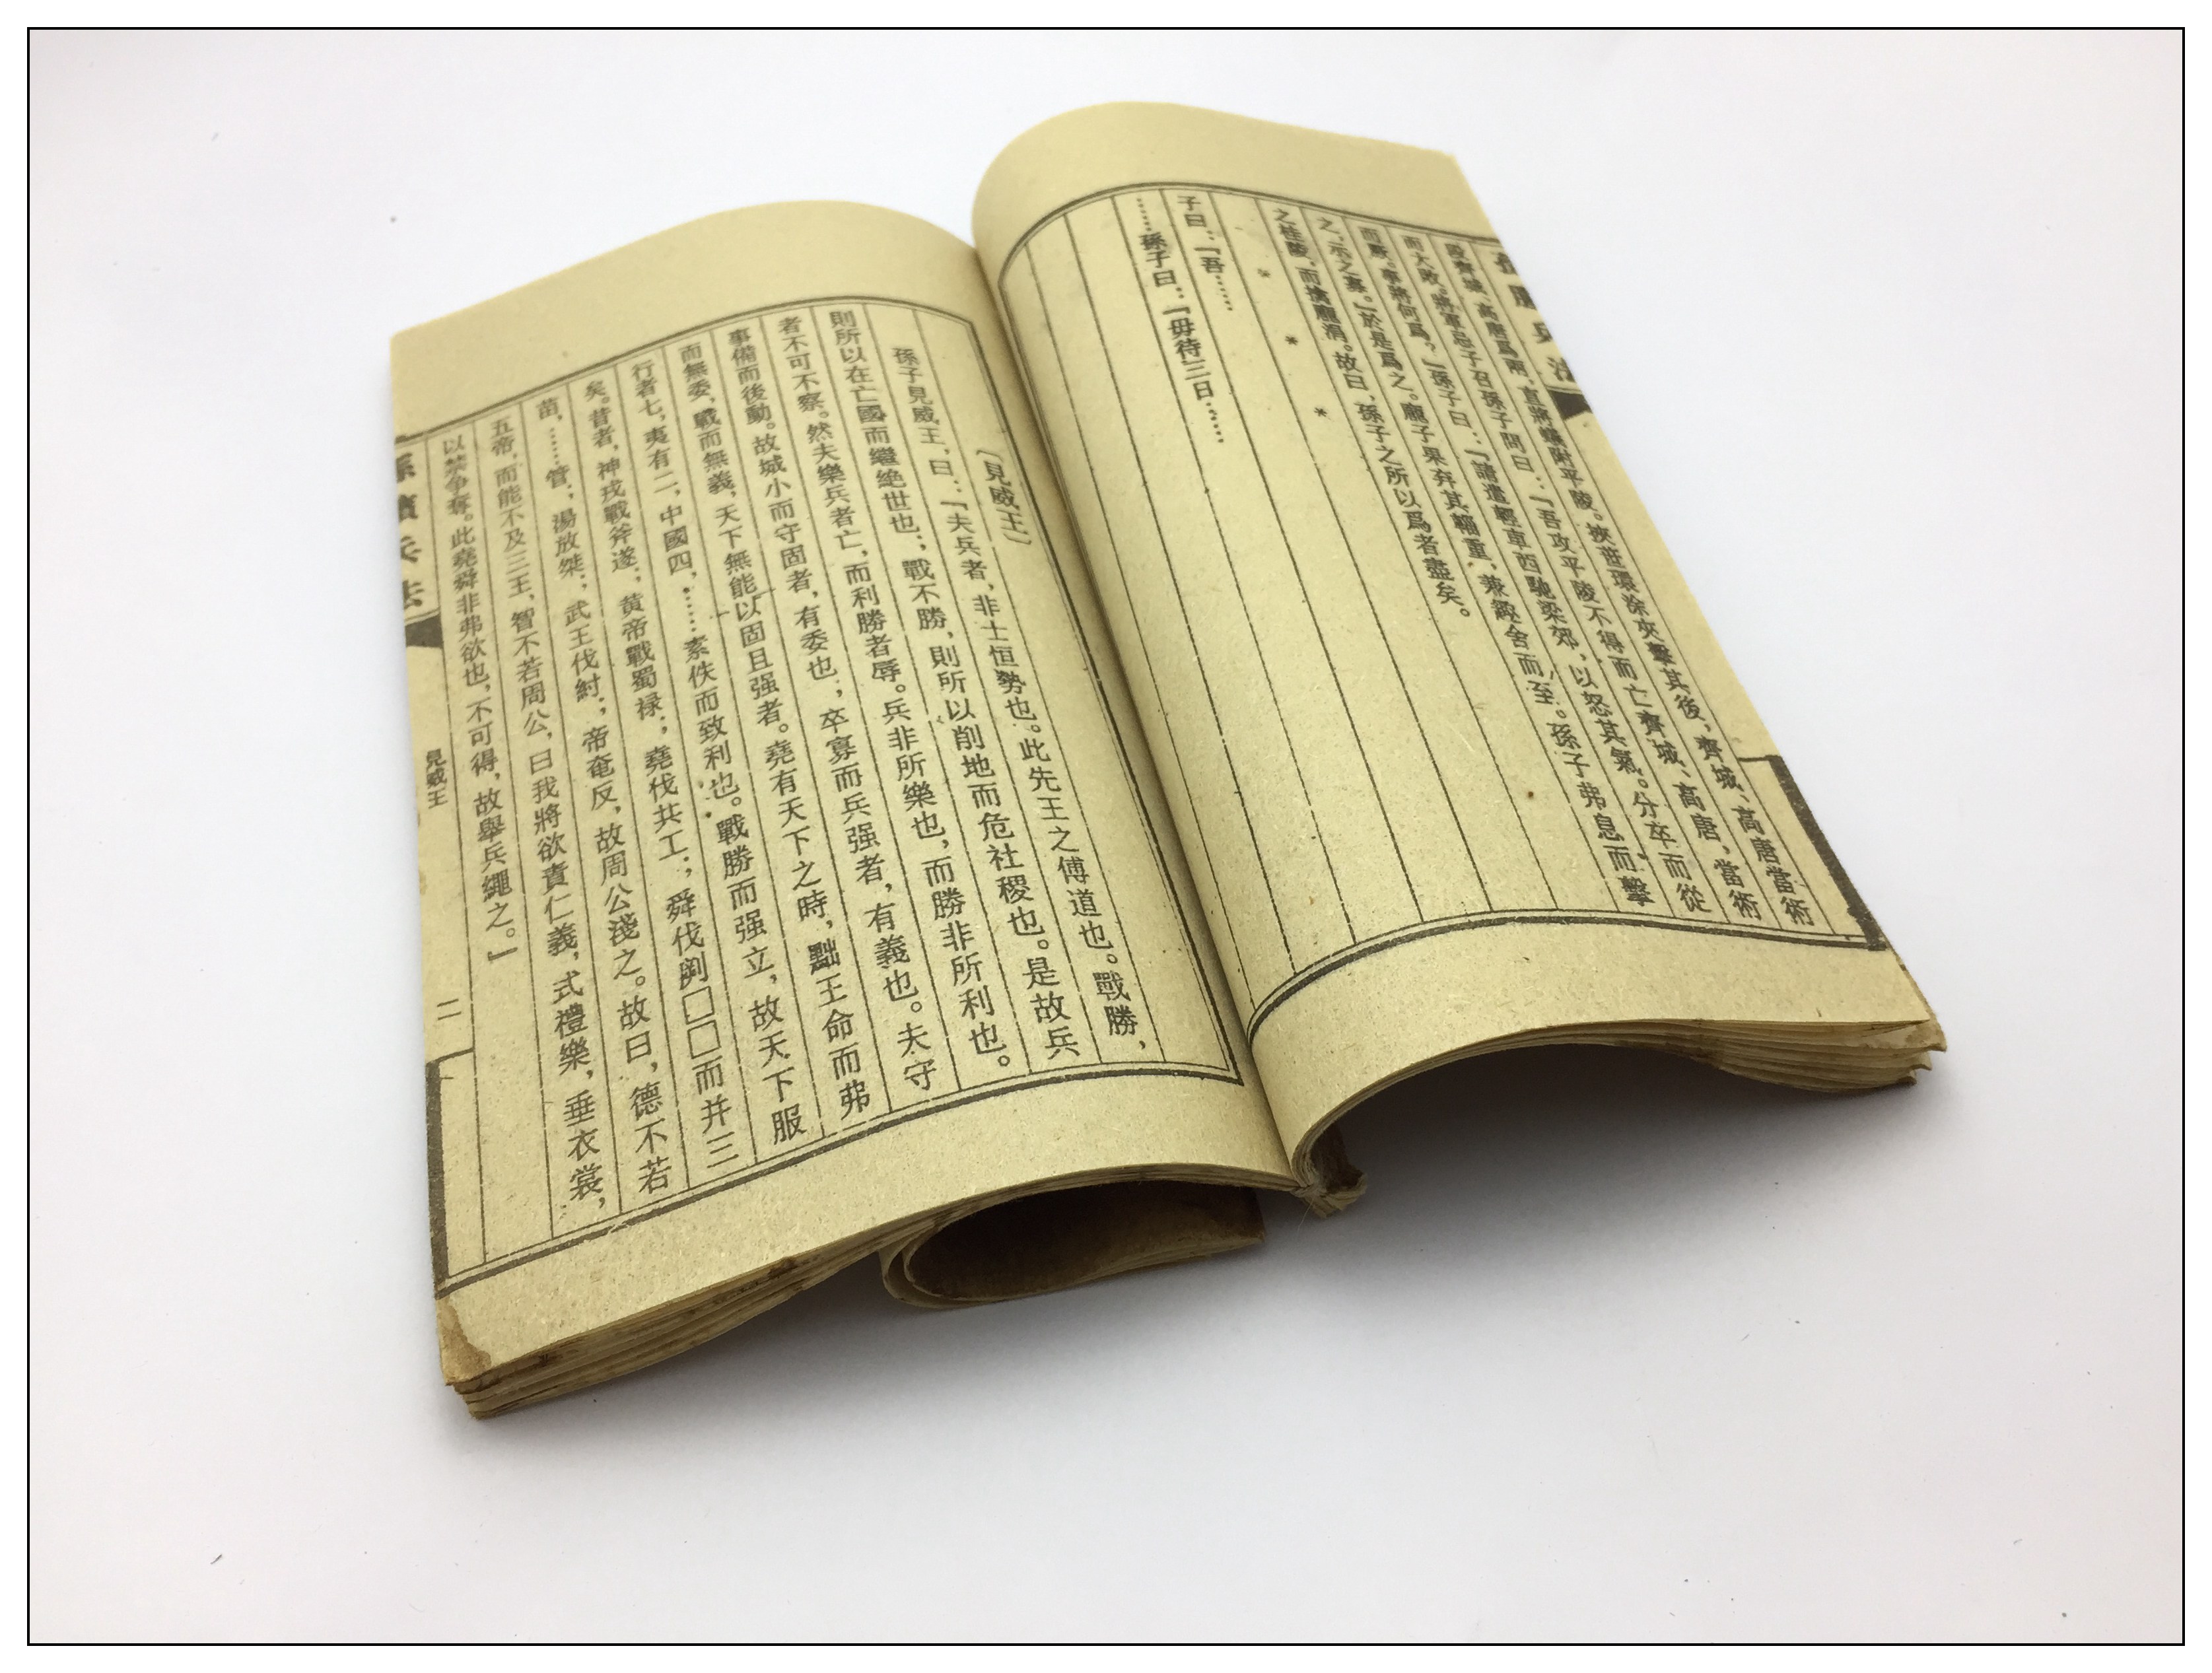 孫臏兵法
段齊城、高唐爲兩,直將蟻附平陵。挾𦭮環涂夾擊其後,齊城、高唐當術
而大敗。將軍忌子召孫子問曰:「吾攻平陵不得而亡齊城、高唐,當術
而厥。事將何爲?」孫子曰:「請遣輕車西馳梁郊,以怒其氣。分卒而從
之,示之寡。」於是爲之。龐子果弃其輜重,兼趣舍而至。孫子弗息而擊
之桂陵,而擒龐涓。故曰,孫子之所以爲者盡矣。
* * *
子曰:「吾……
……孫子曰:「毋待三日……
〔見威王〕
孫子見威王,曰:「夫兵者,非士恒勢也。此先王之傅道也。戰勝,
則所以在亡國而繼絶世也;戰不勝,則所以削地而危社稷也。是故兵
者不可不察。然夫樂兵者亡,而利勝者辱。兵非所樂也,而勝非所利也。
事備而後動。故城小而守固者,有委也;卒寡而兵强者,有義也。夫守
而無委,戰而無義,天下無能以固且强者。堯有天下之時,黜王命而弗
行者七,夷有二,中國四,……素佚而致利也。戰勝而强立,故天下服
矣。昔者,神戎戰斧遂;黄帝戰蜀禄;堯伐共工;舜伐劌□□而并三
苗,……管;湯放桀;武王伐紂;帝奄反,故周公淺之。故曰,德不若
五帝,而能不及三王,智不若周公,曰我將欲責仁義,式禮樂,垂衣裳,
以禁爭奪。此堯舜非弗欲也,不可得,故舉兵繩之。」
孫臏兵法
見威王
二